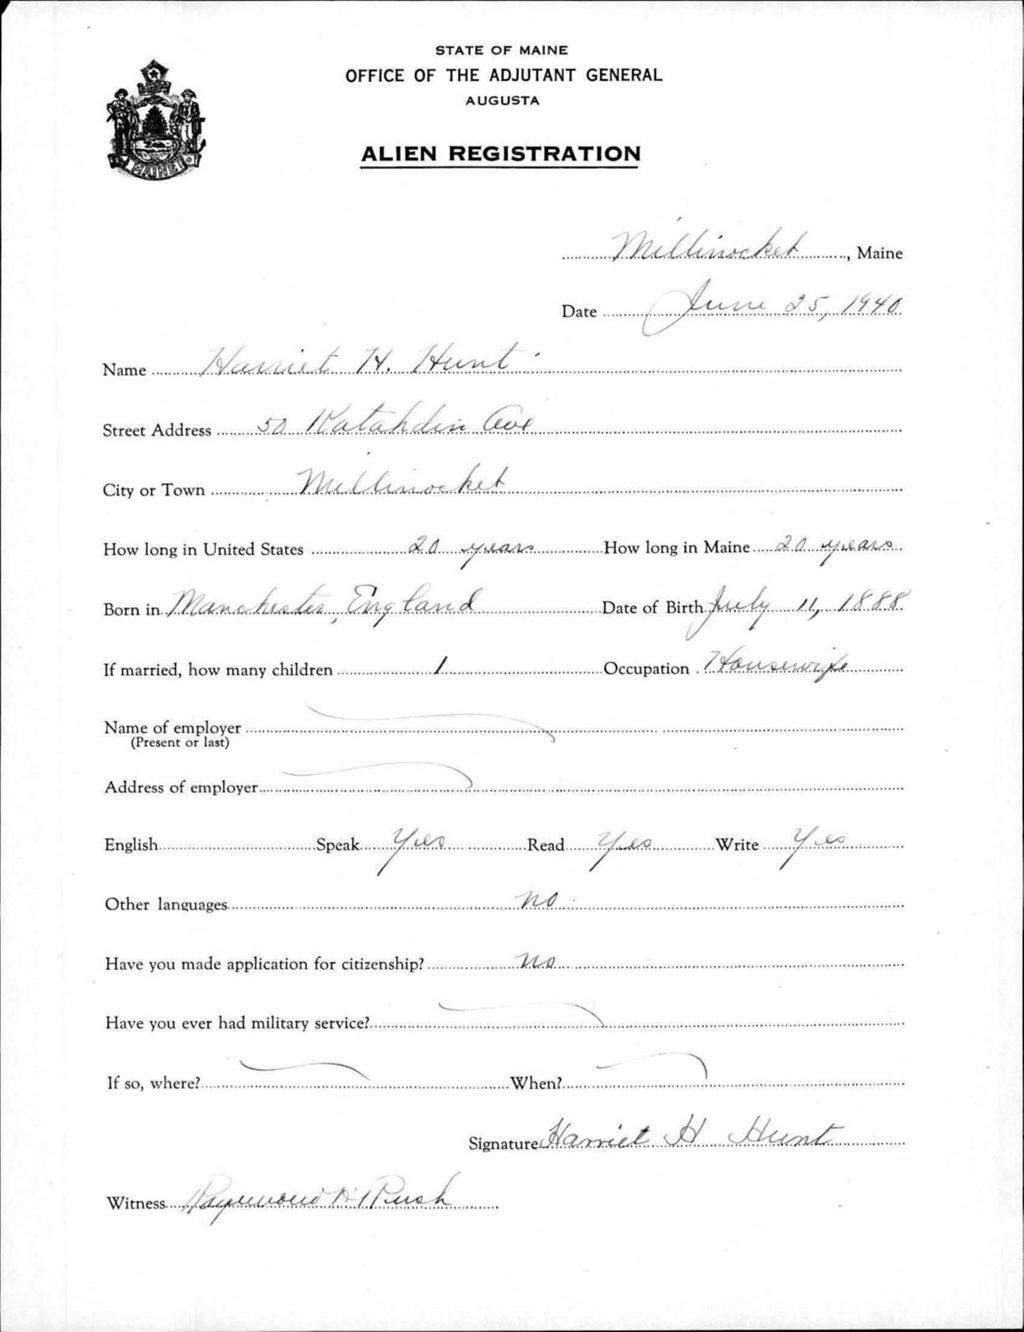 STATE OF MAINE
OFFICE OF THE ADJUTANT GENERAL
AUGUSTA
ALIEN REGISTRATION
MAINE
Millinocket, Maine
Date June 25, 1940
Name Harriet H. Hunt
Street Address 50 Katahdin Ave
City or Town Millinocket
How long in United States 20 years How long in Maine 20 years
Born in Manchester, England Date of Birth July 11, 1888
If married, how many children 1 Occupation Housewife
Name of employer
(Present or last)
Address of employer
English Speak Yes Read Yes Write Yes
Other languages no
Have you made application for citizenship? no
Have you ever had military service?
If so, where? When?
Signature Harriet H Hunt
Witness Raymond H Rush